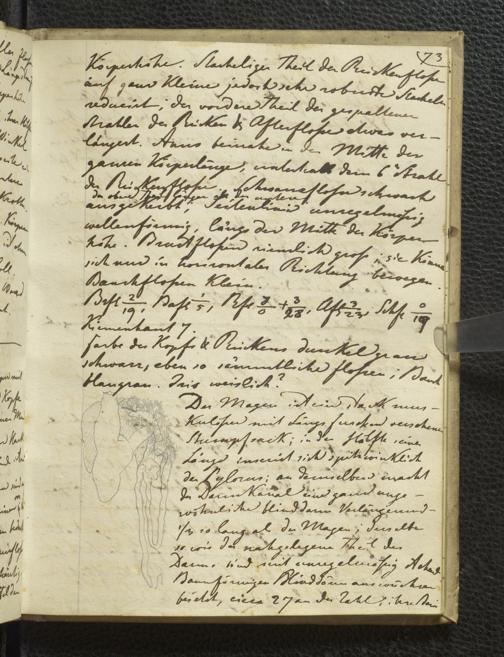 73
Körperhöhe. Stacheliger Theil der Rückenflosse
auf ganz kleine jedoch sehr robuste Stacheln
reducirt; der vordere Theil der gespaltenen
Strahlen der Rücken & Afterflosse etwas ver-
längert. Anus beinahe in der Mitte der
ganzen Körperlänge, unterhalb dem 6ten Strahl
der Rückenflosse. Schwanzflosse schwach
ausgekerbt, Seitenlinie unregelmässig
wellenförmig, längs der Mitte der Körper-
höhe. Brustflossen ziemlich gross; sie können
sich nur in horizontaler Richtung bewegen.
Bauchflossen klein.
Kiemenhaut 7.
Farbe des Kopfs & Rückens dunkelgrau
schwarz, eben so sämmtliche Flossen; Bauch
blaugrau. Iris weislich?
Der Magen ist ein stark mus-
kulöser mit Längsfurchen versehener
Stumpfsack; in der Hälfte seiner
Länge inserirt sich
der Pylorus; an demselben macht
der Darmkanal eine ganz unge-
wöhnliche blinddarm Verlängerung
so lang als der Magen; derselbe
so wie der nahgelegene Theil des
Darms sind mit unregelmässig
Baumförmigen Blinddarm
besetzt, circa 27 an der Zahl; ihre